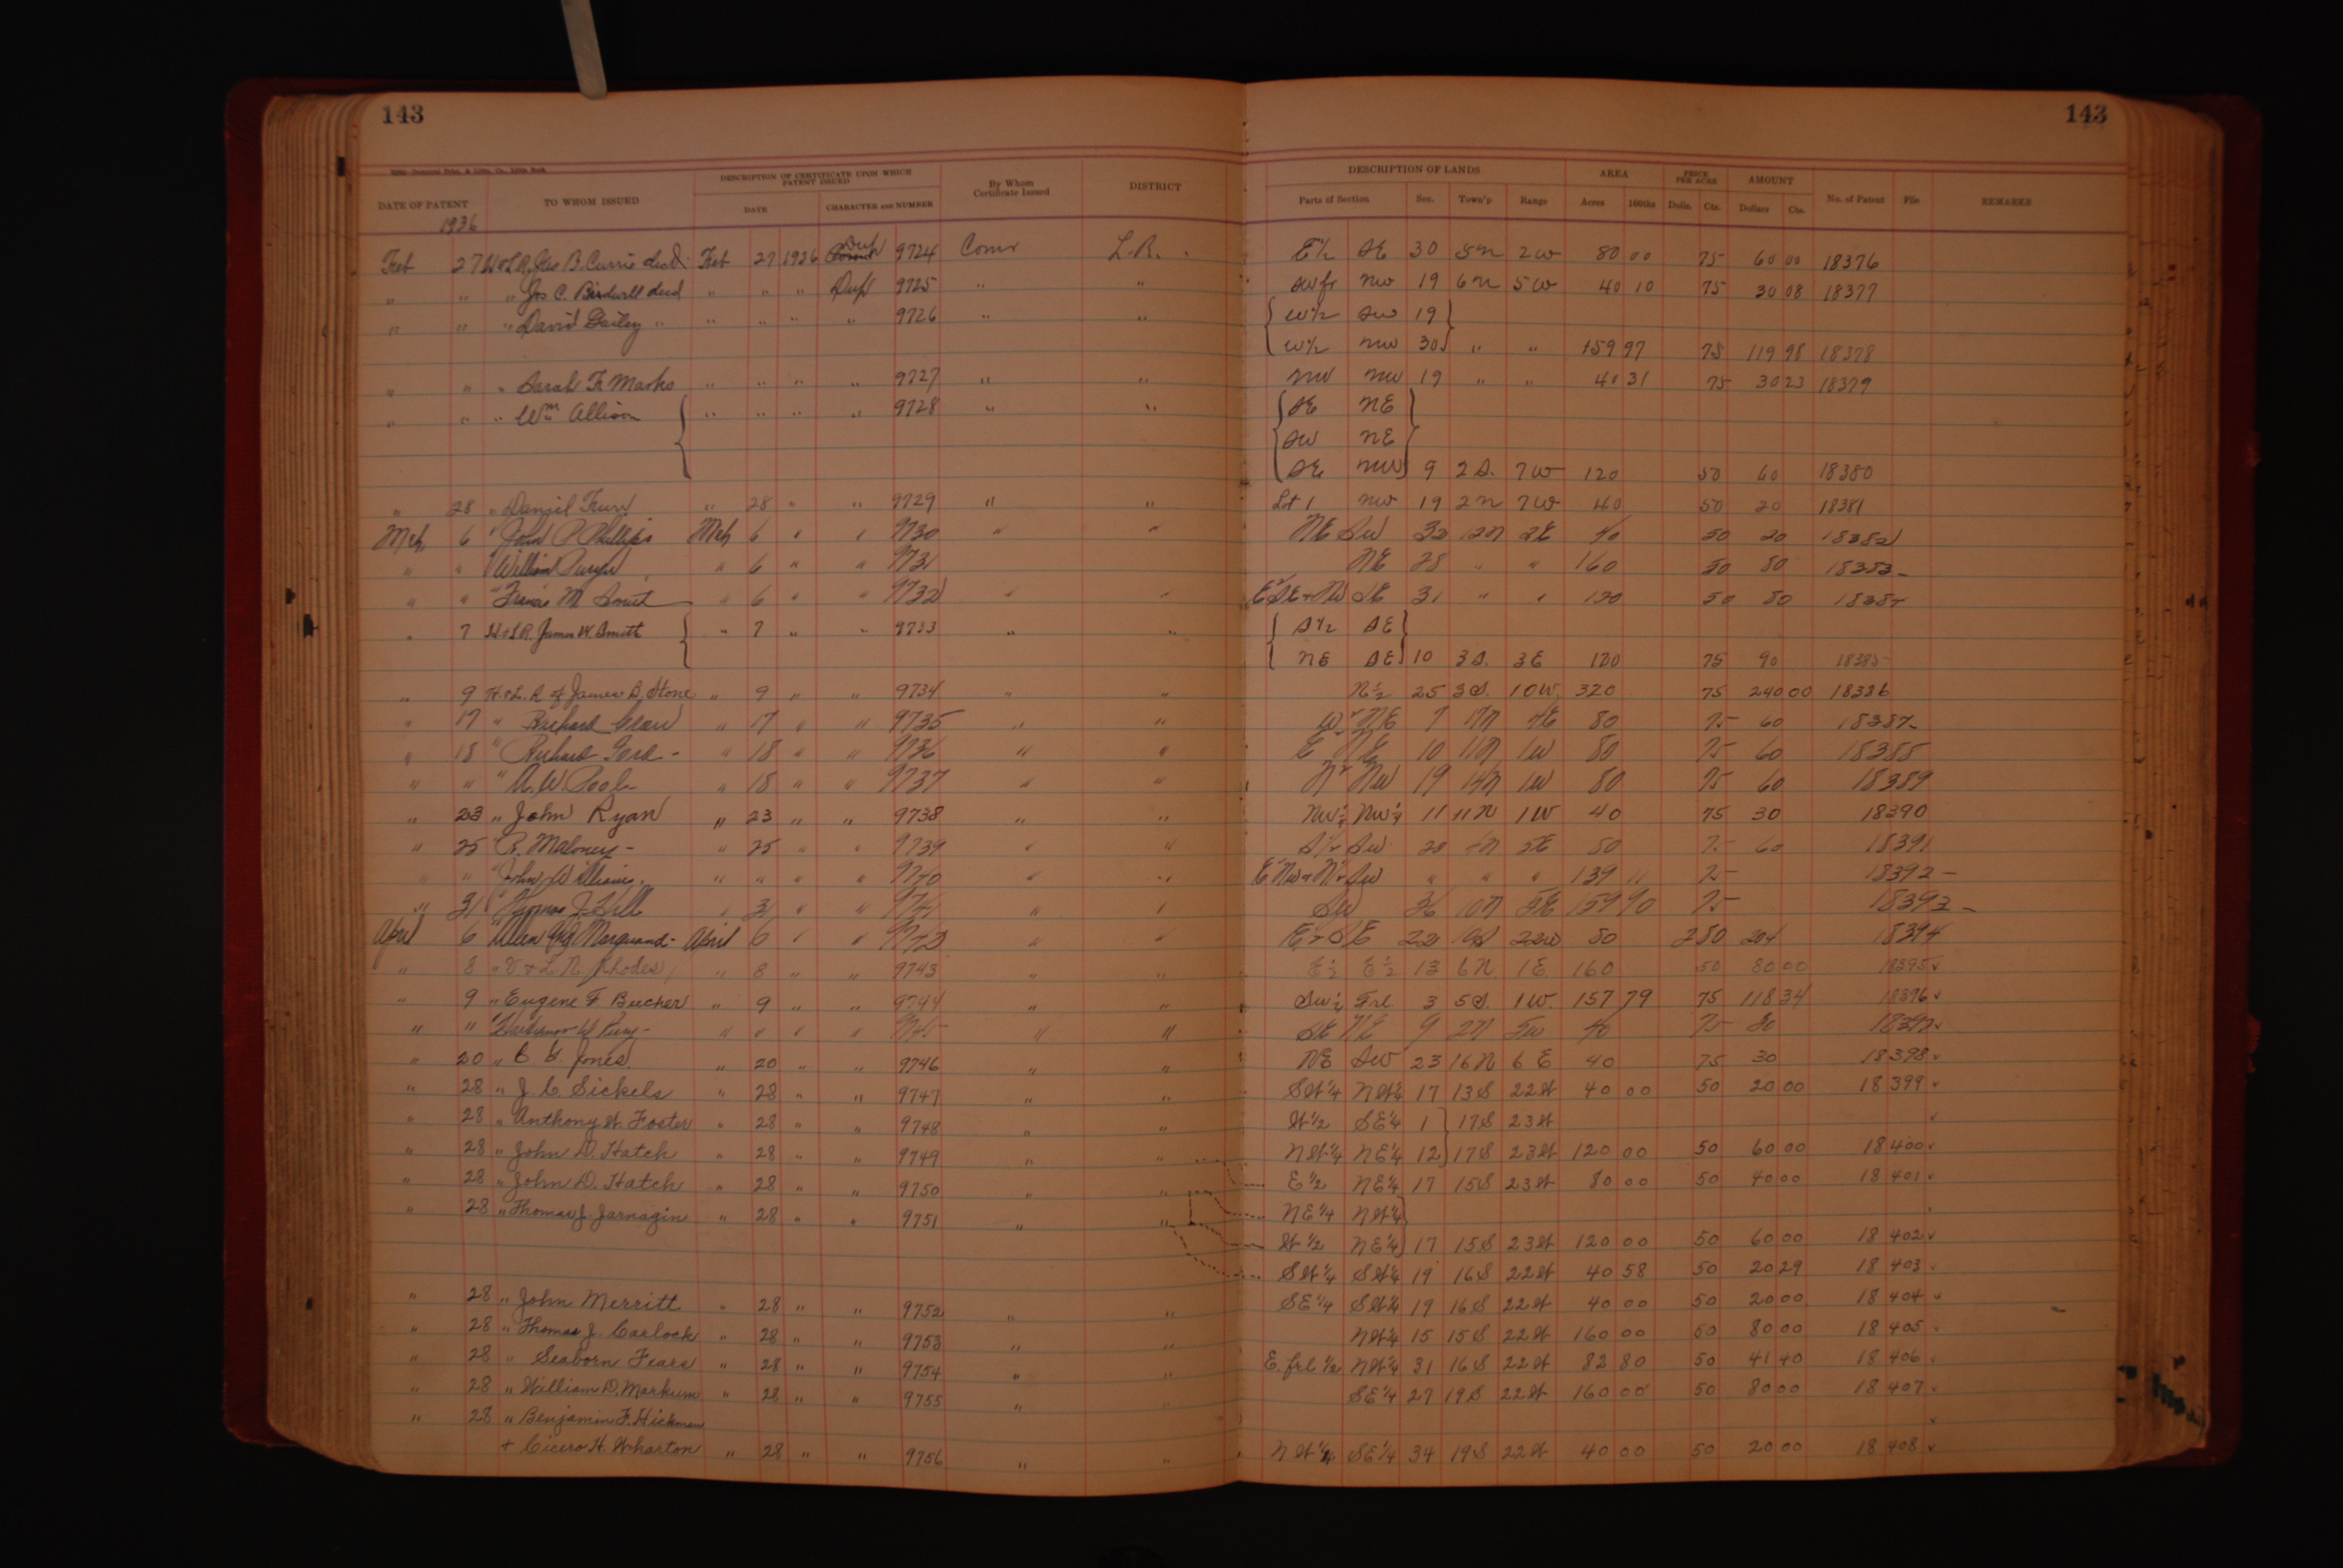 143 143
DESCRIPTION OF CERTIFICATE UPON WHICH PATENT ISSUED DESCRIPTION OF LANDS AREA PRICE PER ACRE AMOUNT
DATE OF PATENT TO WHOM ISSUED DATE CHARACTER AND NUMBER By Whom Certificate Issued DISTRICT Parts of Section Sec. Town'p Range Acres 100ths Dolls. Cts. Dollars Cts. No. of Patent File REMARKS
1936
Feb 27 H & L.R. Jas B. Currie decd. Feb 27 1936 Dup 9724 Comr L.R. E½ SE 30 5N 2W 80 00 75 60 00 18376
" " " Jos C. Birdwell decd " " " Dup 9725 " " SW fr NW 19 6N 5W 40 10 75 30 08 18377
" " " David Bailey " " " " " 9726 " " W½ SW 19
W½ NW 30 " " 159 97 75 119 98 18378
" " " Sarah F. Marks " " " " 9727 " " NW NW 19 " " 40 31 75 30 23 18379
" " " Wm Allison " " " " 9728 " " SE NE
SW NE
SE NW 9 2 S. 7W 120 50 60 18380
" 28 " Daniel " 28 " " 9729 " " Lt 1 NW 19 2N 7W 40 50 20 18381
Mch. 6 " John P Phillips Mch 6 " " 9730 " " NE SW 32 12N 2E 40 50 20 18382
" " " William " 6 " " 9731 NE 28 " " 160 50 80 18383
" " " Francis M " 6 " " 9732 " " E½SE & NW SE 31 " " 120 50 18384
" 7 H & L.R. James W. Smith " 7 " " 9733 " " S½ SE
NE SE 10 3 S. 3E 120 75 90 18385
" 9 H. & L. R of James S. Stone " 9 " " 9734 " " N½ 25 3 S. 10W. 320 75 240 00 18386
" 17 " Richard " 17 " " 9735 " " W½ NE 7 80 75 60 18387
" 18 " Richard " 18 " " 9736 " " 10 11N 1W 80 75 60 18388
" " " A. W. Pool " 18 " " 9737 " " N½ NW 19 14N 1W 80 75 60 18389
" 23 " John Ryan " 23 " " 9738 " " NW¼ NW¼ 11 11N 1W 40 75 30 18390
" 25 " R. Maloney " 25 " " 9739 " " S½ SW 28 80 75 60 18391
" " " John Williams. " " " " 9740 " " E½NW & N½ SW " " " 139 75 18392
" 31 " Thomas J. Hill " 31 " " 9741 " " SW 36 10N 159 90 75 18393
April 6 " Allen Marquand April 6 " " " " E½ SE 22 22W 80 2 50 204 18394
" 8 " V & L. N. Rhodes " 8 " " 9743 " " E½ E½ 13 6N 1E 160 50 80 00 18395
" 9 " Eugene F Bucher " 9 " " 9744 " " SW¼ Frl. 3 5 S. 1W. 157 79 75 118 34 18396
" " " " " " " " " SE NE 9 2N 5W 40 75 30 18397
" 20 " C. G. Jones. " 20 " " 9746 " " NE SW 23 16N 6 E 40 75 30 18398
" 28 " J. C. Sickels " 28 " " 9747 " " SW¼ NW¼ 17 13S 22W 40 00 50 20 00 18 399
" 28 " Anthony W. Foster " 28 " " 9748 " " W½ SE¼ 1 17S 23W
" 28 " John D. Hatch " 28 " " 9749 " " NW¼ NE¼ 12 17S 23W 120 00 50 60 00 18 400
" 28 " John D. Hatch " 28 " " 9750 " " E½ NE¼ 17 15S 23W 80 00 50 40 00 18 401
" 28 " Thomas J. Jarnagin " 28 " " 9751 " " NE¼ NW¼
W½ NE¼ 17 15S 23W 120 00 50 60 00 18 402
SW¼ SW¼ 19 16S 22W 40 58 50 20 29 18 403
" 28 " John Merritt " 28 " " 9752 " " SE¼ SW¼ 19 16S 22W 40 00 50 20 00 18 404
" 28 " Thomas J. Carlock " 28 " " 9753 " " NW¼ 15 15S 22W 160 00 50 80 00 18 405
" 28 " Seaborn Fears " 28 " " 9754 " " E. frl ½ NW¼ 31 16S 22W 82 80 50 41 40 18 406
" 28 " William D. Markum " 28 " " 9755 " " SE¼ 27 19S 22W 160 00 50 80 00 18 407
" 28 " Benjamin F. Hickman
& Cicero H. Wharton " 28 " " 9756 " " NW¼ SE¼ 34 19S 22W 40 00 50 20 00 18 408